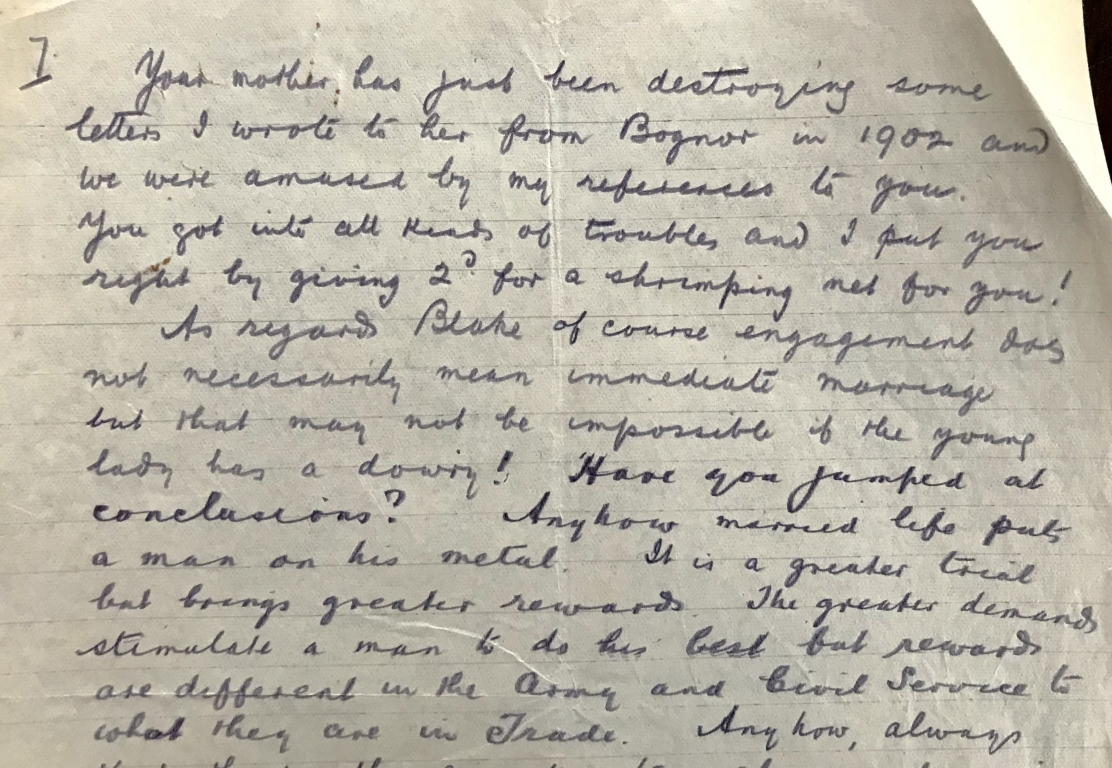 7
Your mother has just been destroying some
letters I wrote to her from Bognor in 1902 and
we were amused by my references to you.
You got into all kinds of troubles and I put you
right by giving 2ᵈ for a shrimping net for you!
As regards Blake of course engagement does
not necessarily mean immediate marriage
but that may not be impossible if the young
lady has a dowry! Have you jumped at
conclusions? Anyhow married life puts
a man on his metal. It is a greater trial
but brings greater rewards. The greater demands
stimulate a man to do his best but rewards
are different in the Army and Civil Service to
what they are in Trade. Anyhow, always